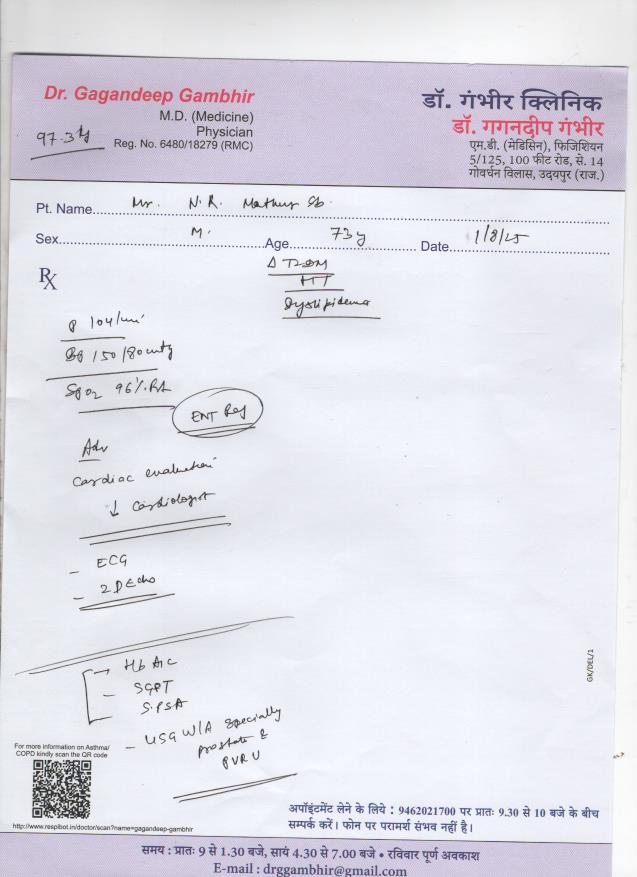 Dr. Gagandeep Gambhir
M.D. (Medicine)
Physician
Reg. No. 6480/18279 (RMC)
97.3 kg
डॉ. गंभीर क्लिनिक
डॉ. गगनदीप गंभीर
एम.डी. (मेडिसिन), फिजिशियन
5/125, 100 फीट रोड, से. 14
गोवर्धन विलास, उदयपुर (राज.)
Pt. Name Mr. N.R. Mathur Sb.
Sex M. Age 73y Date 1/8/25
Rx
Δ T2DM
HT
Dyslipidema
P 104/min
BP 150/80 mmHg
SpO2 96% RA
ENT Ref
Adv
Cardiac evaluation
↓ Cardiologist
- ECG
- 2D Echo
HbA1c
- SGPT
S.PSA
- USG W/A specially
prostate &
PVRU
GK/DEL/1
For more information on Asthma/
COPD kindly scan the QR code
http://www.respibot.in/doctor/scan?name=gagandeep-gambhir
अपॉइंटमेंट लेने के लिये : 9462021700 पर प्रातः 9.30 से 10 बजे के बीच
सम्पर्क करें। फोन पर परामर्श संभव नहीं है।
समय : प्रातः 9 से 1.30 बजे, सायं 4.30 से 7.00 बजे • रविवार पूर्ण अवकाश
E-mail : drggambhir@gmail.com